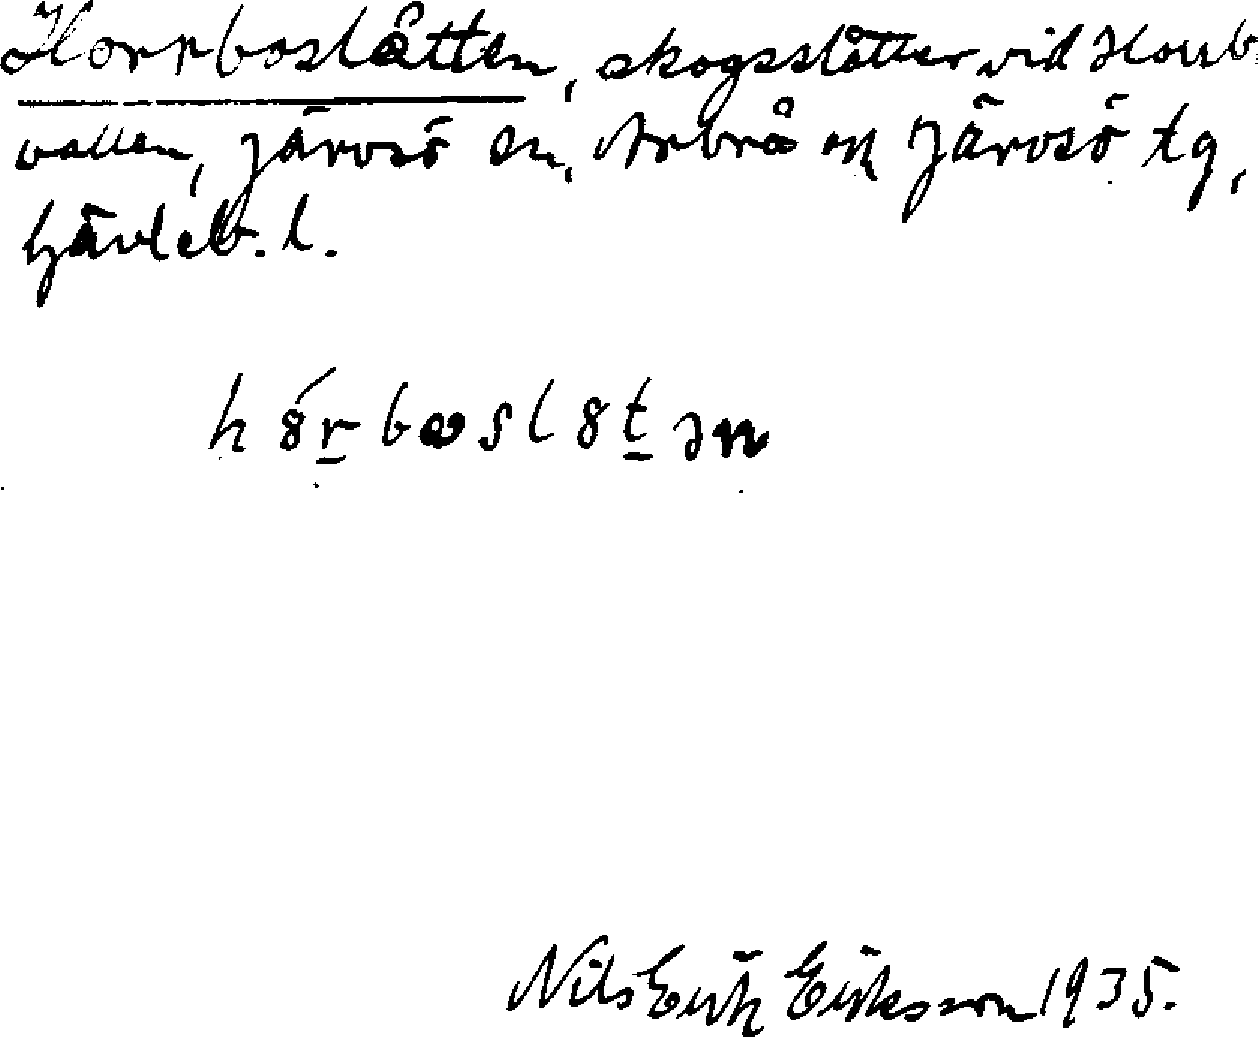 Horrboslåtten, skogsslåtter vid Horrb
vallen, Järvsö sn, Arbrå ok Järvsö tg,
Gävleb. l.
hörboslötən
Nils Erik Eriksson 1935.